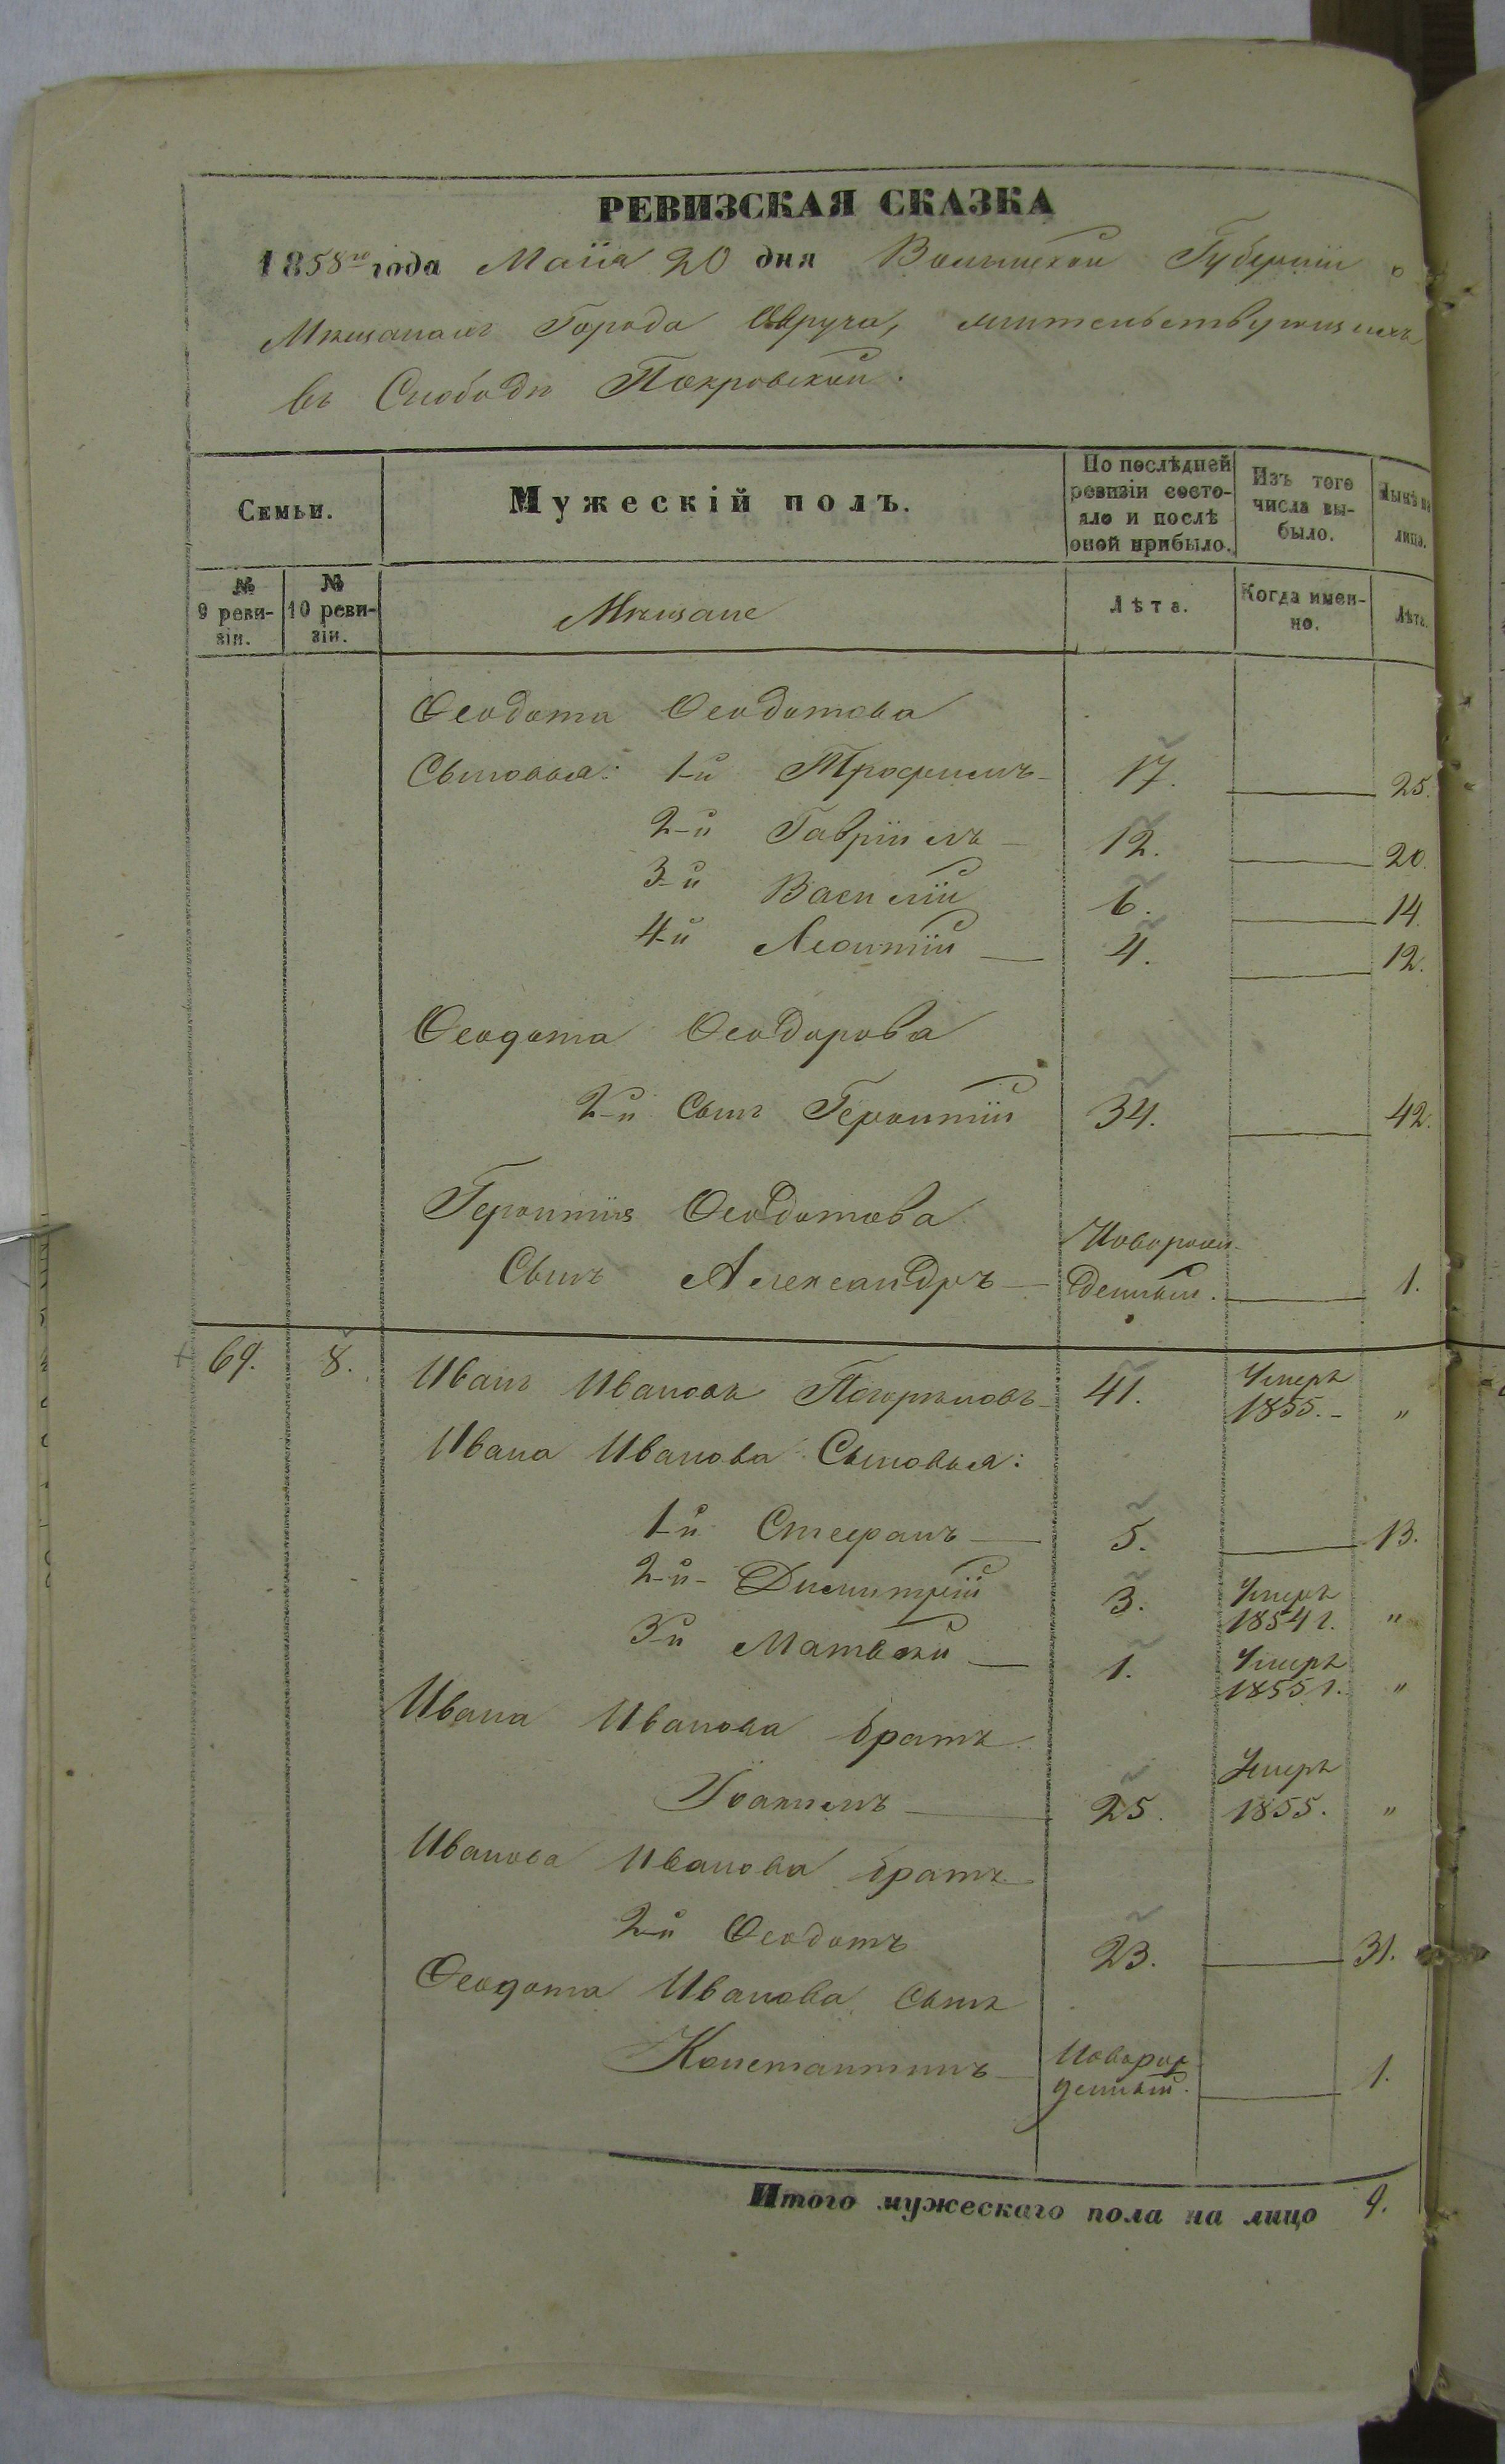 РЕВИЗСКАЯ СКАЗКА
1858го года Маія 20 дня Волынской Губерніи о
Мѣщанахъ Города Овруча, жительствующихъ
въ Слободѣ Покровской.
Семьи.
Мужескій полъ.
По послѣдней ревизіи состо-
яло и послѣ
оной прибыло.
Изъ того
числа вы-
было.
Нынѣ на
лицо.
№
9 реви-
зіи.
№
10 реви-
зіи.
Мѣщане
Лѣта.
Когда имен-
но.
Лѣта.
Ѳеодота Ѳеодотова
Сыновья: 1-й Трофимъ 17. 25.
2-й Гавріилъ 12. 20.
3-й Василій 6. 14.
4-й Леонтій 4. 12.
Ѳеодота Ѳеодорова
2-й Сынъ Геронтій 34. 42.
Геронтія Ѳеодотова
Сынъ Александръ Новорож-
денный. 1.
69. 8. Иванъ Ивановъ 41. Умеръ
1855. "
Ивана Иванова Сыновья:
1-й Стефанъ 5. 13.
2-й Димитрій 3. Умеръ
1854 г. "
3-й Матвей 1. Умеръ
1855 г. "
Ивана Иванова братъ
Іоакимъ 25. Умеръ
1855. "
Иванова Иванова братъ
2-й Ѳеодотъ 23. 31.
Ѳеодота Иванова Сынъ
Константинъ Новорож-
денный. 1.
Итого мужескаго пола на лицо 9.